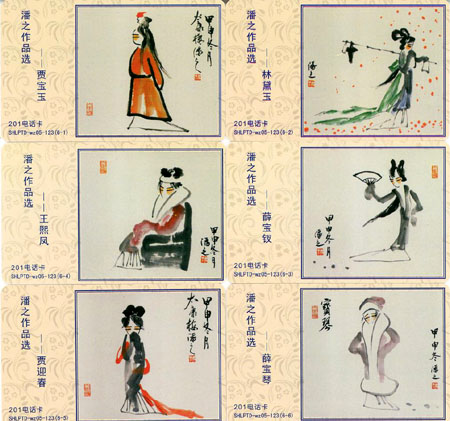 潘之作品选
——贾宝玉
甲申冬月
201电话卡
SHLPTD-wz05-123(6-1)
潘之作品选
——林黛玉
潘之
201电话卡
SHLPTD-wz05-123(6-2)
潘之作品选
——王熙凤
甲申冬月
潘之
201电话卡
SHLPTD-wz05-123(6-4)
潘之作品选
——薛宝钗
甲申冬月
潘之
201电话卡
SHLPTD-wz05-123(6-3)
潘之作品选
——贾迎春
甲申冬月
201电话卡
SHLPTD-wz05-123(6-5)
潘之作品选
——薛宝琴
寶琴
甲申冬潘之
201电话卡
SHLPTD-wz05-123(6-6)